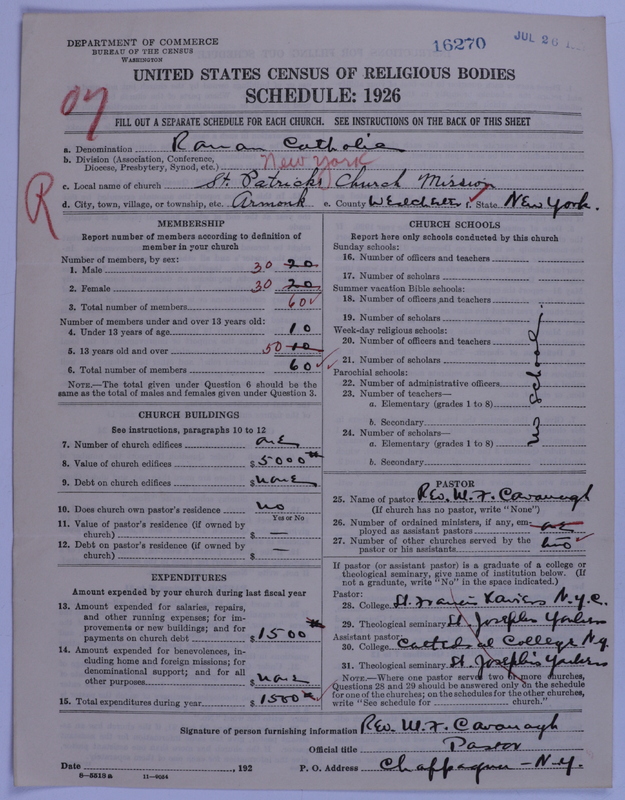 DEPARTMENT OF COMMERCE
BUREAU OF THE CENSUS
WASHINGTON
16270
JUL 26
UNITED STATES CENSUS OF RELIGIOUS BODIES
SCHEDULE: 1926
07
FILL OUT A SEPARATE SCHEDULE FOR EACH CHURCH. SEE INSTRUCTIONS ON THE BACK OF THIS SHEET
a. Denomination Roman Catholic
b. Division (Association, Conference, Diocese, Presbytery, Synod, etc.) New York
c. Local name of church St. Patricks Church Mission
R
d. City, town, village, or township, etc. Armonk e. County Westchester f. State New York.
MEMBERSHIP
Report number of members according to definition of
member in your church
Number of members, by sex:
1. Male 30 20
2. Female 30 20
3. Total number of members 60
Number of members under and over 13 years old:
4. Under 13 years of age 10
5. 13 years old and over 50 10
6. Total number of members 60
NOTE.—The total given under Question 6 should be the
same as the total of males and females given under Question 3.
CHURCH BUILDINGS
See instructions, paragraphs 10 to 12
7. Number of church edifices one
8. Value of church edifices $5000
9. Debt on church edifices $none
10. Does church own pastor's residence? no
Yes or No
11. Value of pastor's residence (if owned by
church) $ —
12. Debt on pastor's residence (if owned by
church) $ —
EXPENDITURES
Amount expended by your church during last fiscal year
13. Amount expended for salaries, repairs,
and other running expenses; for im-
provements or new buildings; and for
payments on church debt $1500
14. Amount expended for benevolences, in-
cluding home and foreign missions; for
denominational support; and for all
other purposes $none
15. Total expenditures during year $1500
CHURCH SCHOOLS
Report here only schools conducted by this church
Sunday schools:
16. Number of officers and teachers
17. Number of scholars
Summer vacation Bible schools:
18. Number of officers and teachers
19. Number of scholars
Week-day religious schools:
20. Number of officers and teachers
21. Number of scholars
Parochial schools:
22. Number of administrative officers
23. Number of teachers—
a. Elementary (grades 1 to 8)
b. Secondary
24. Number of scholars—
a. Elementary (grades 1 to 8)
b. Secondary
no school.
PASTOR
25. Name of pastor Rev. W. F. Cavanagh
(If church has no pastor, write "None")
26. Number of ordained ministers, if any, em-
ployed as assistant pastors
27. Number of other churches served by the
pastor or his assistants two
If pastor (or assistant pastor) is a graduate of a college or
theological seminary, give name of institution below. (If
not a graduate, write "No" in the space indicated.)
Pastor:
28. College St. Francis Xaviers N.Y.C.
29. Theological seminary St. Josephs Yonkers
Assistant pastor:
30. College Cathedral College N.Y.
31. Theological seminary St. Josephs Yonkers
NOTE.—Where one pastor serves two or more churches,
Questions 28 and 29 should be answered only on the schedule
for one of the churches; on the schedules for the other churches,
write "See schedule for church."
Signature of person furnishing information Rev. W. F. Cavanagh
Official title Pastor
Date , 192 P. O. Address Chappaqua - N.Y.
8—5513a 11—9024